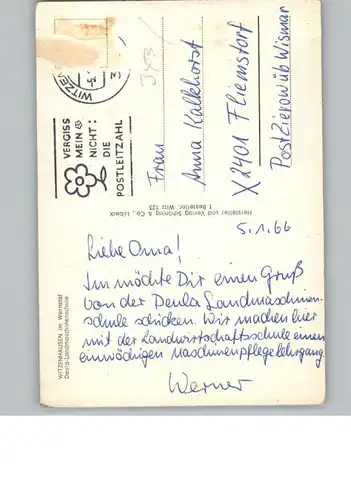 WITZENHAUSEN im Werratal
Deula-Landmaschinenschule
Liebe Oma!
Im möchte Dir einen Gruß
von der Deula Landmaschinen-
schule schicken. Wir machen hier
mit der Landwirtschaftsschule einen
einwöchigen Maschinenpflegelehrgang.
Werner
5.1.66
Hersteller und Verlag Schöning & Co., Lübeck
Bestellnr. Witz 123
WITZEN
VERGISS
MEIN
NICHT:
DIE
POSTLEITZAHL
Frau
Anna Kalkhorst
X2401 Fliemstorf
Post Zierow üb Wismar